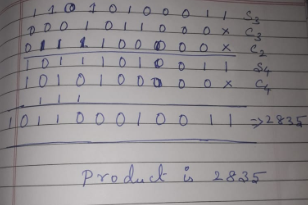 1 1 0 1 0 1 0 0 0 1 1 S3
0 0 0 1 0 1 1 0 0 0 × C3
0 1 1 1 1 0 0 0 0 0 × C2
1 0 1 1 1 0 1 0 0 1 1 S4
1 0 1 0 1 0 0 0 0 0 × C4
1 1 1
1 0 1 1 0 0 0 1 0 0 1 1 → 2835
Product is 2835